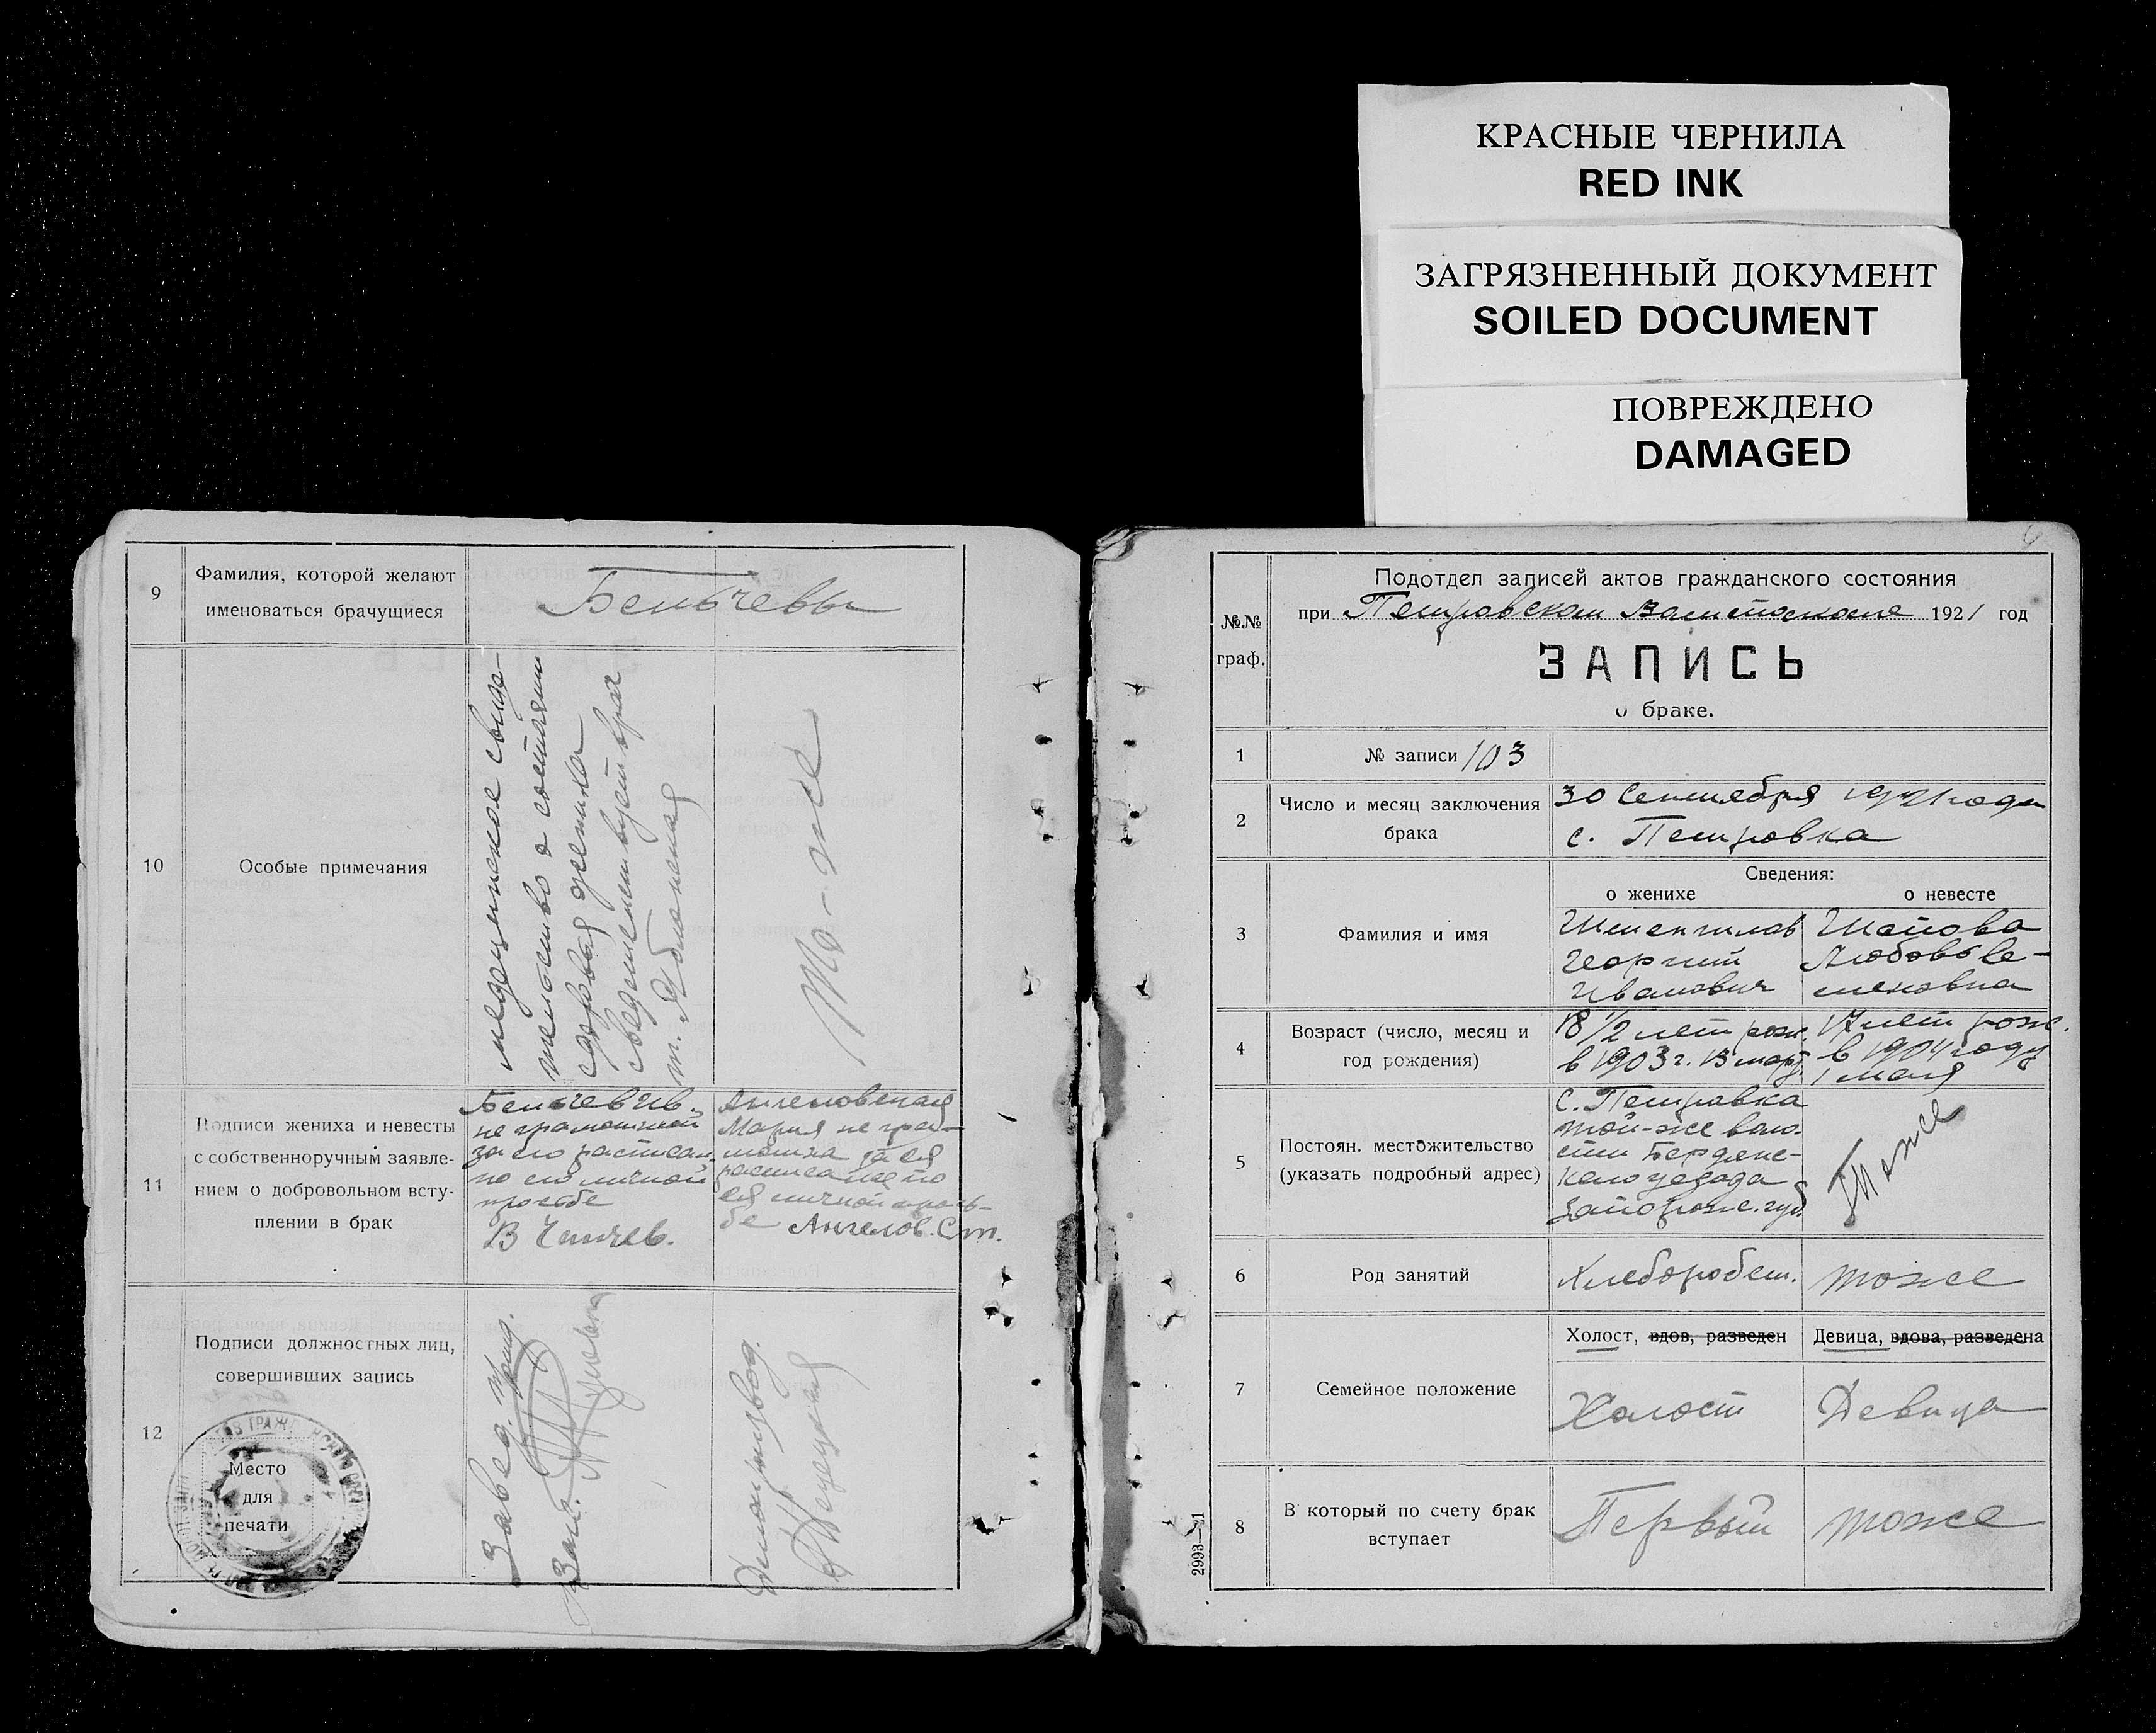 КРАСНЫЕ ЧЕРНИЛА
RED INK
ЗАГРЯЗНЕННЫЙ ДОКУМЕНТ
SOILED DOCUMENT
ПОВРЕЖДЕНО
DAMAGED
9
Фамилия, которой желают
именоваться брачущиеся
Бельчевы
10
Особые примечания
медицинское свиде-
тельство о состоянии
здоровья жениха
свидетельствует врач
То-же
11
Подписи жениха и невесты
с собственноручным заявле-
нием о добровольном всту-
плении в брак
Бельчев Ив.
не грамотный
за его расписал.
по его личной
просьбе
Ангеловская
Мария не грам-
отна за ея
расписался по
ея личной прось-
бе Ангелов. Ст.
12
Подписи должностных лиц,
совершивших запись
Место
для
печати
Завед.
Делопризвод.
№№
граф.
Подотдел записей актов гражданского состояния
при Петровском Волисполкоме 1921 год
ЗАПИСЬ
о браке.
1
№ записи 103
2
Число и месяц заключения
брака
30 Сентября 1921 года
с. Петровка
3
Фамилия и имя
Сведения:
о женихе
о невесте
Георгий
Иванович
Любовь Се-
меновна
4
Возраст (число, месяц и
год рождения)
18 1/2 лет рож.
в 1903 г. 13 март.
17 лет рож.
в 1904 году
1 мая
5
Постоян. местожительство
(указать подробный адрес)
с. Петровка
той-же воло-
сти Бердянс-
каго уезда
Запорож. губ.
тоже
6
Род занятий
Хлебороб
тоже
7
Семейное положение
Холост, вдов, разведен
Девица, вдова, разведена
Холост
Девица
8
В который по счету брак
вступает
Первый
тоже
2993—21